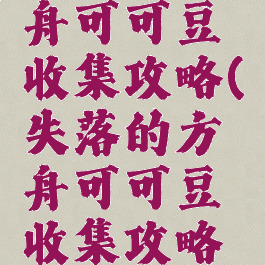 舟可可豆
收集攻略(
失落的方
舟可可豆
收集攻略